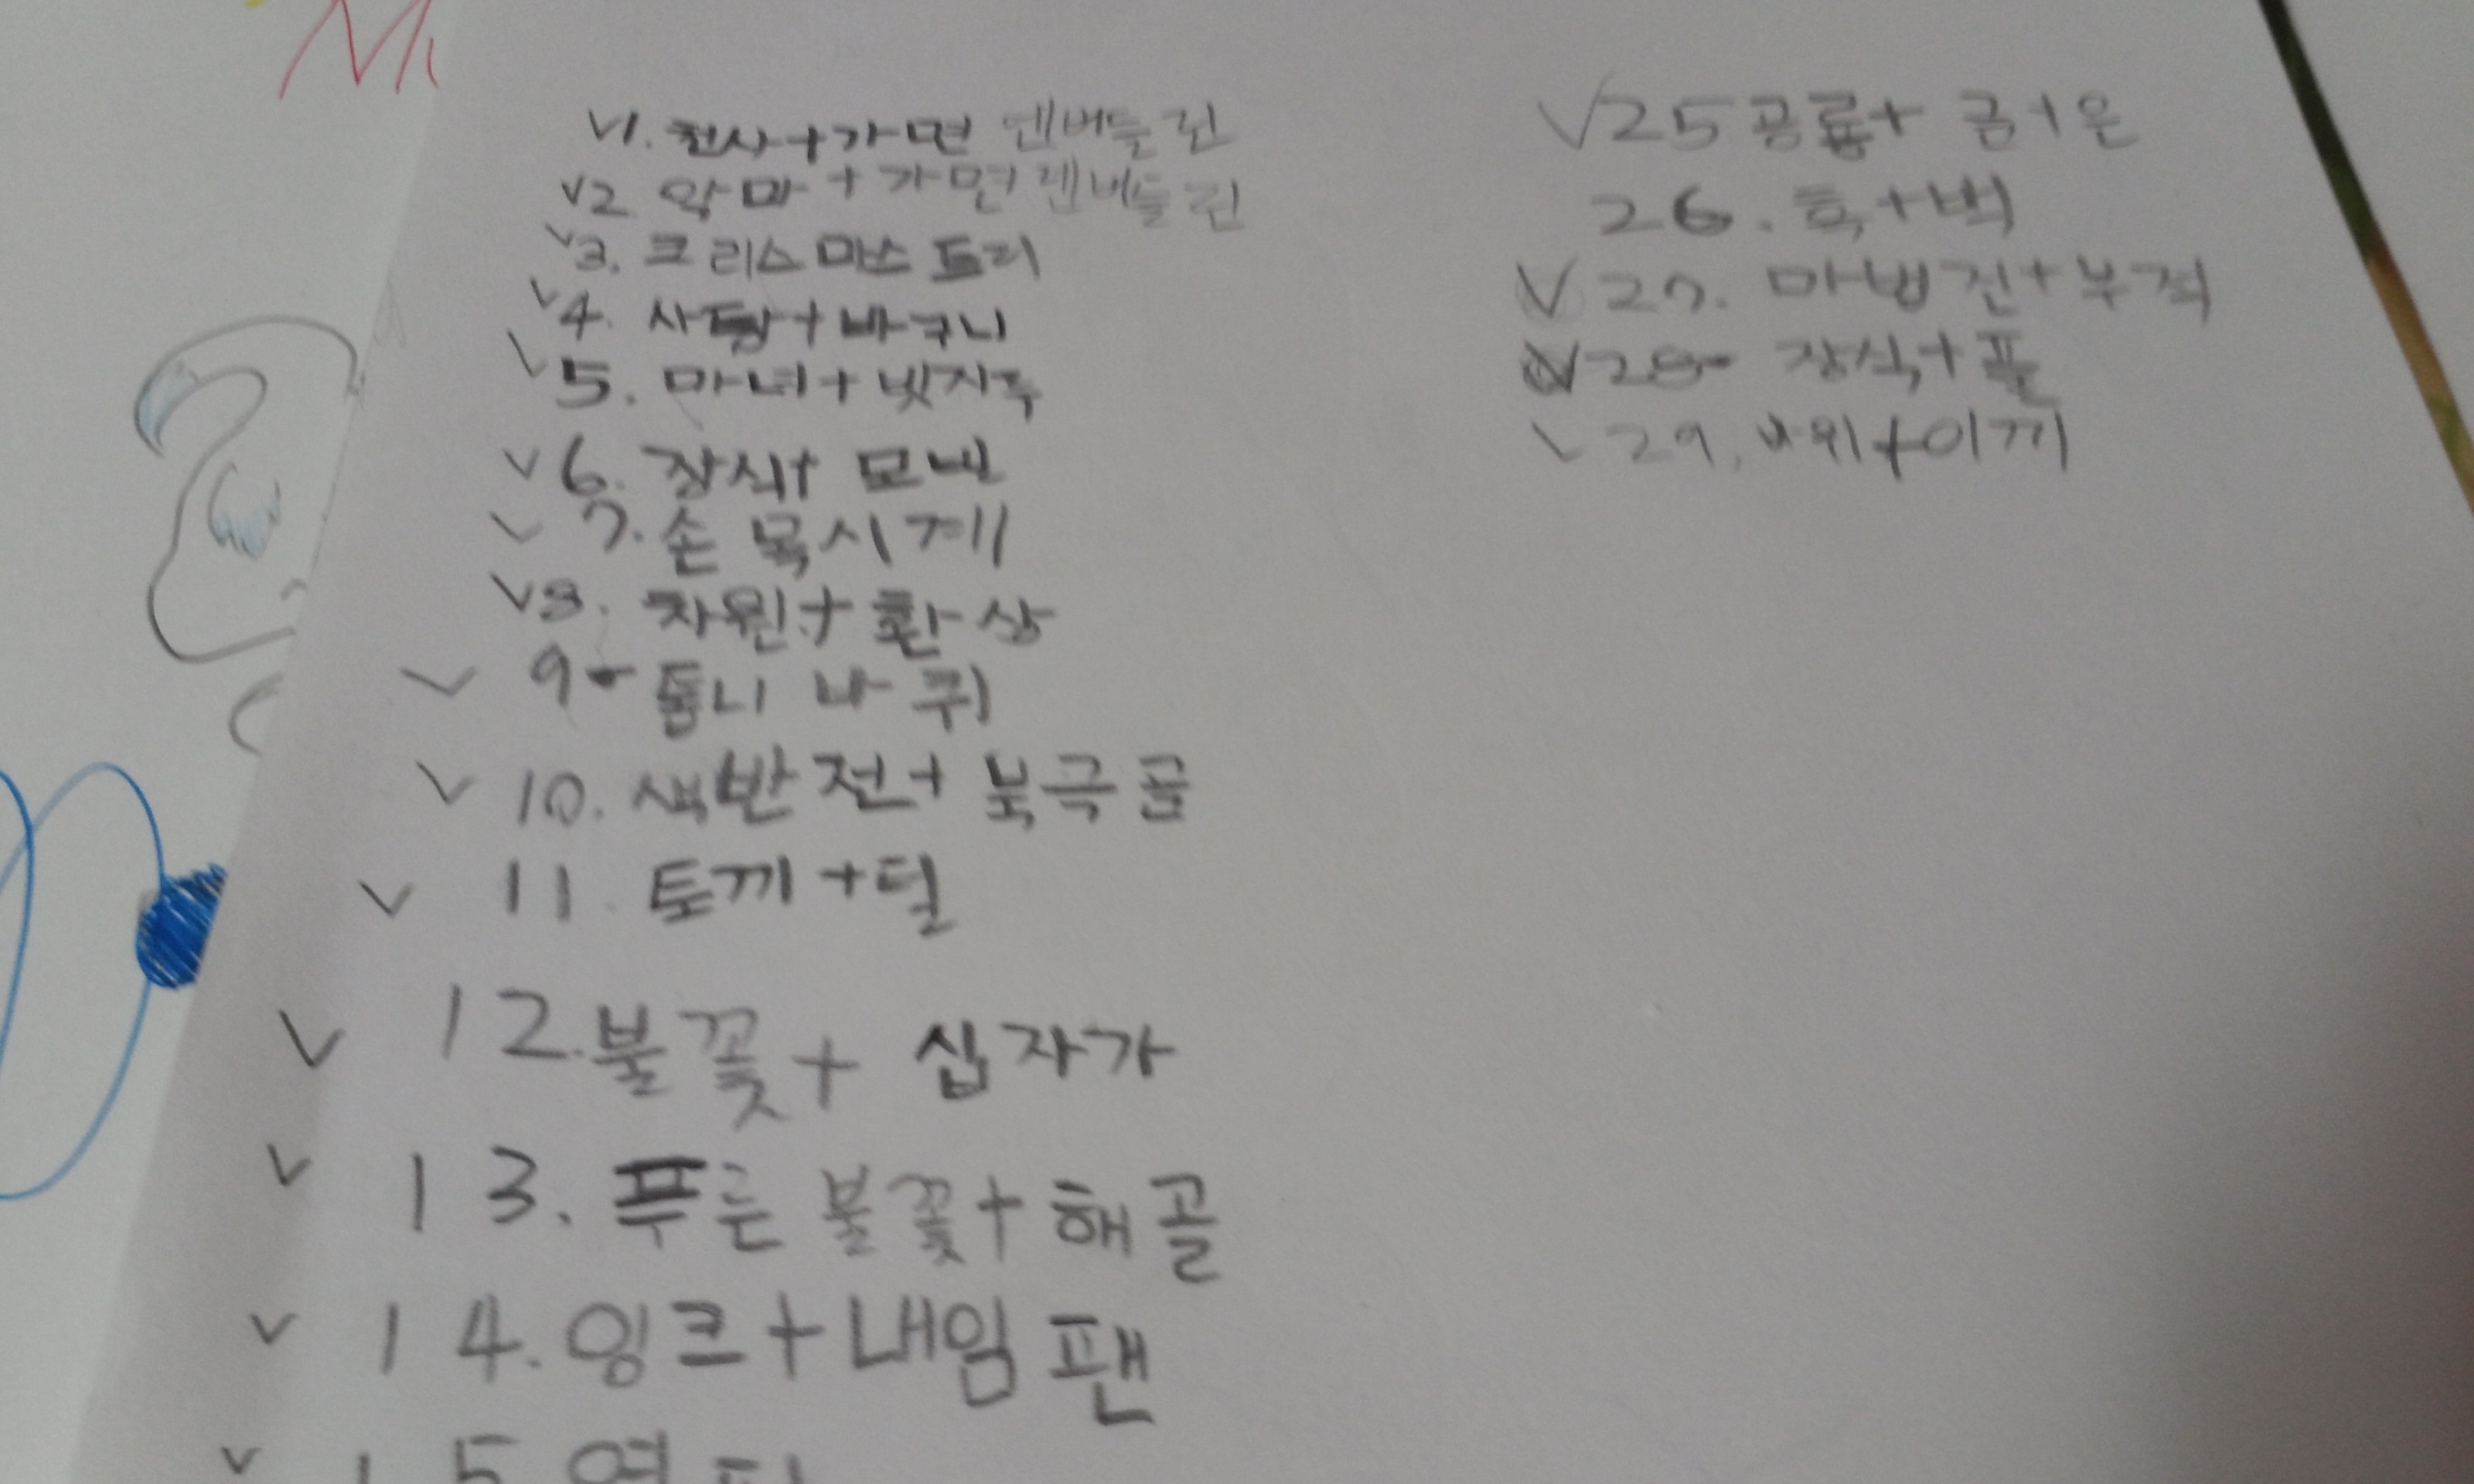 1. 천사+가면
2 악마+가면
3. 크리스마스 트리
4. 사탕+바구니
5. 마녀+빗자루
6. 장식+
7. 손목시계
8. 차원+환상
9. 톱니 바퀴
10. 색반전+북극곰
11. 토끼+털
12. 불꽃+십자가
13. 푸른 불꽃+해골
14. 잉크+내임팬
15
25 공룡+금+은
26. 흑+백
27. 마법진+부적
28. 장식+풀
29. 바위+이끼